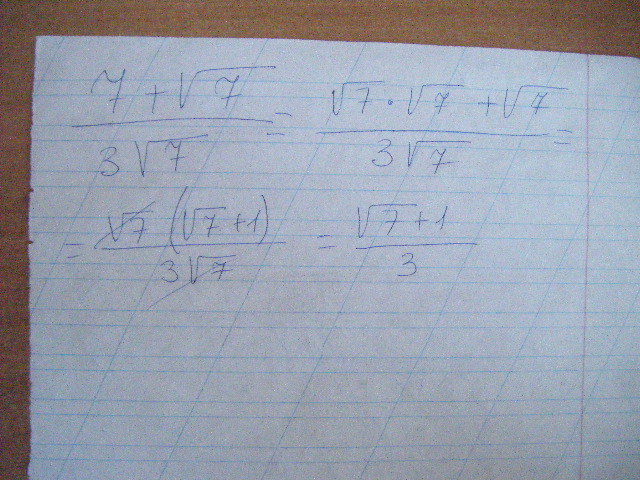 (7 + √7) / (3√7) = (√7 · √7 + √7) / (3√7) =
= (√7 (√7 + 1)) / (3√7) = (√7 + 1) / 3